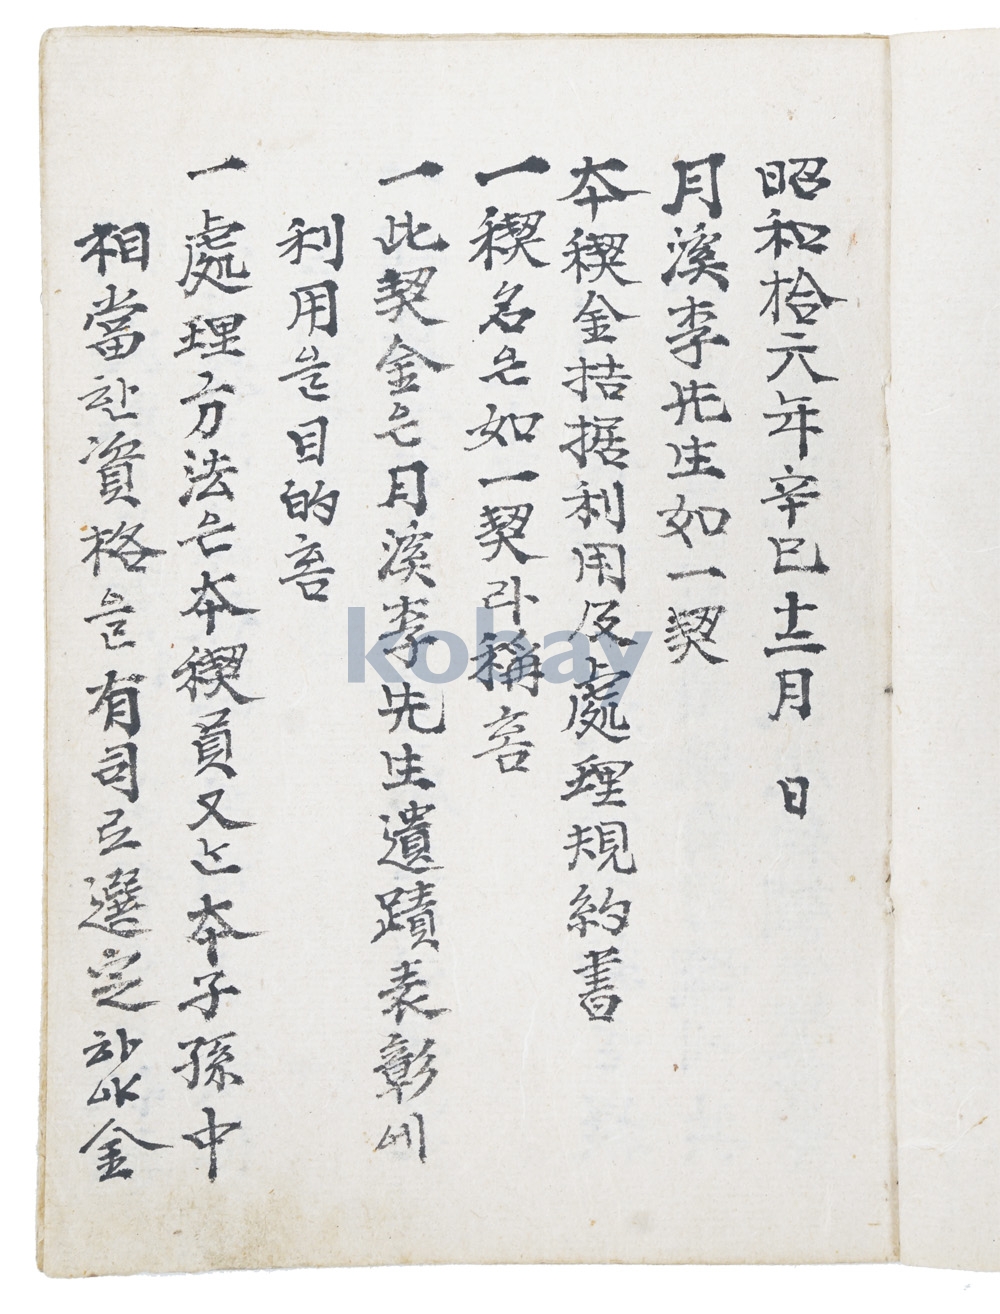 昭和拾六年辛巳十二月 日
月溪李先生如一契
本稧金拮据利用及處理規約書
一稧名은如一契라稱홈
一此契金은月溪李先生遺蹟表彰에
利用을目的홈
一處理方法은本稧員又는本子孫中
相當한資格을有司로選定하야金
kobay